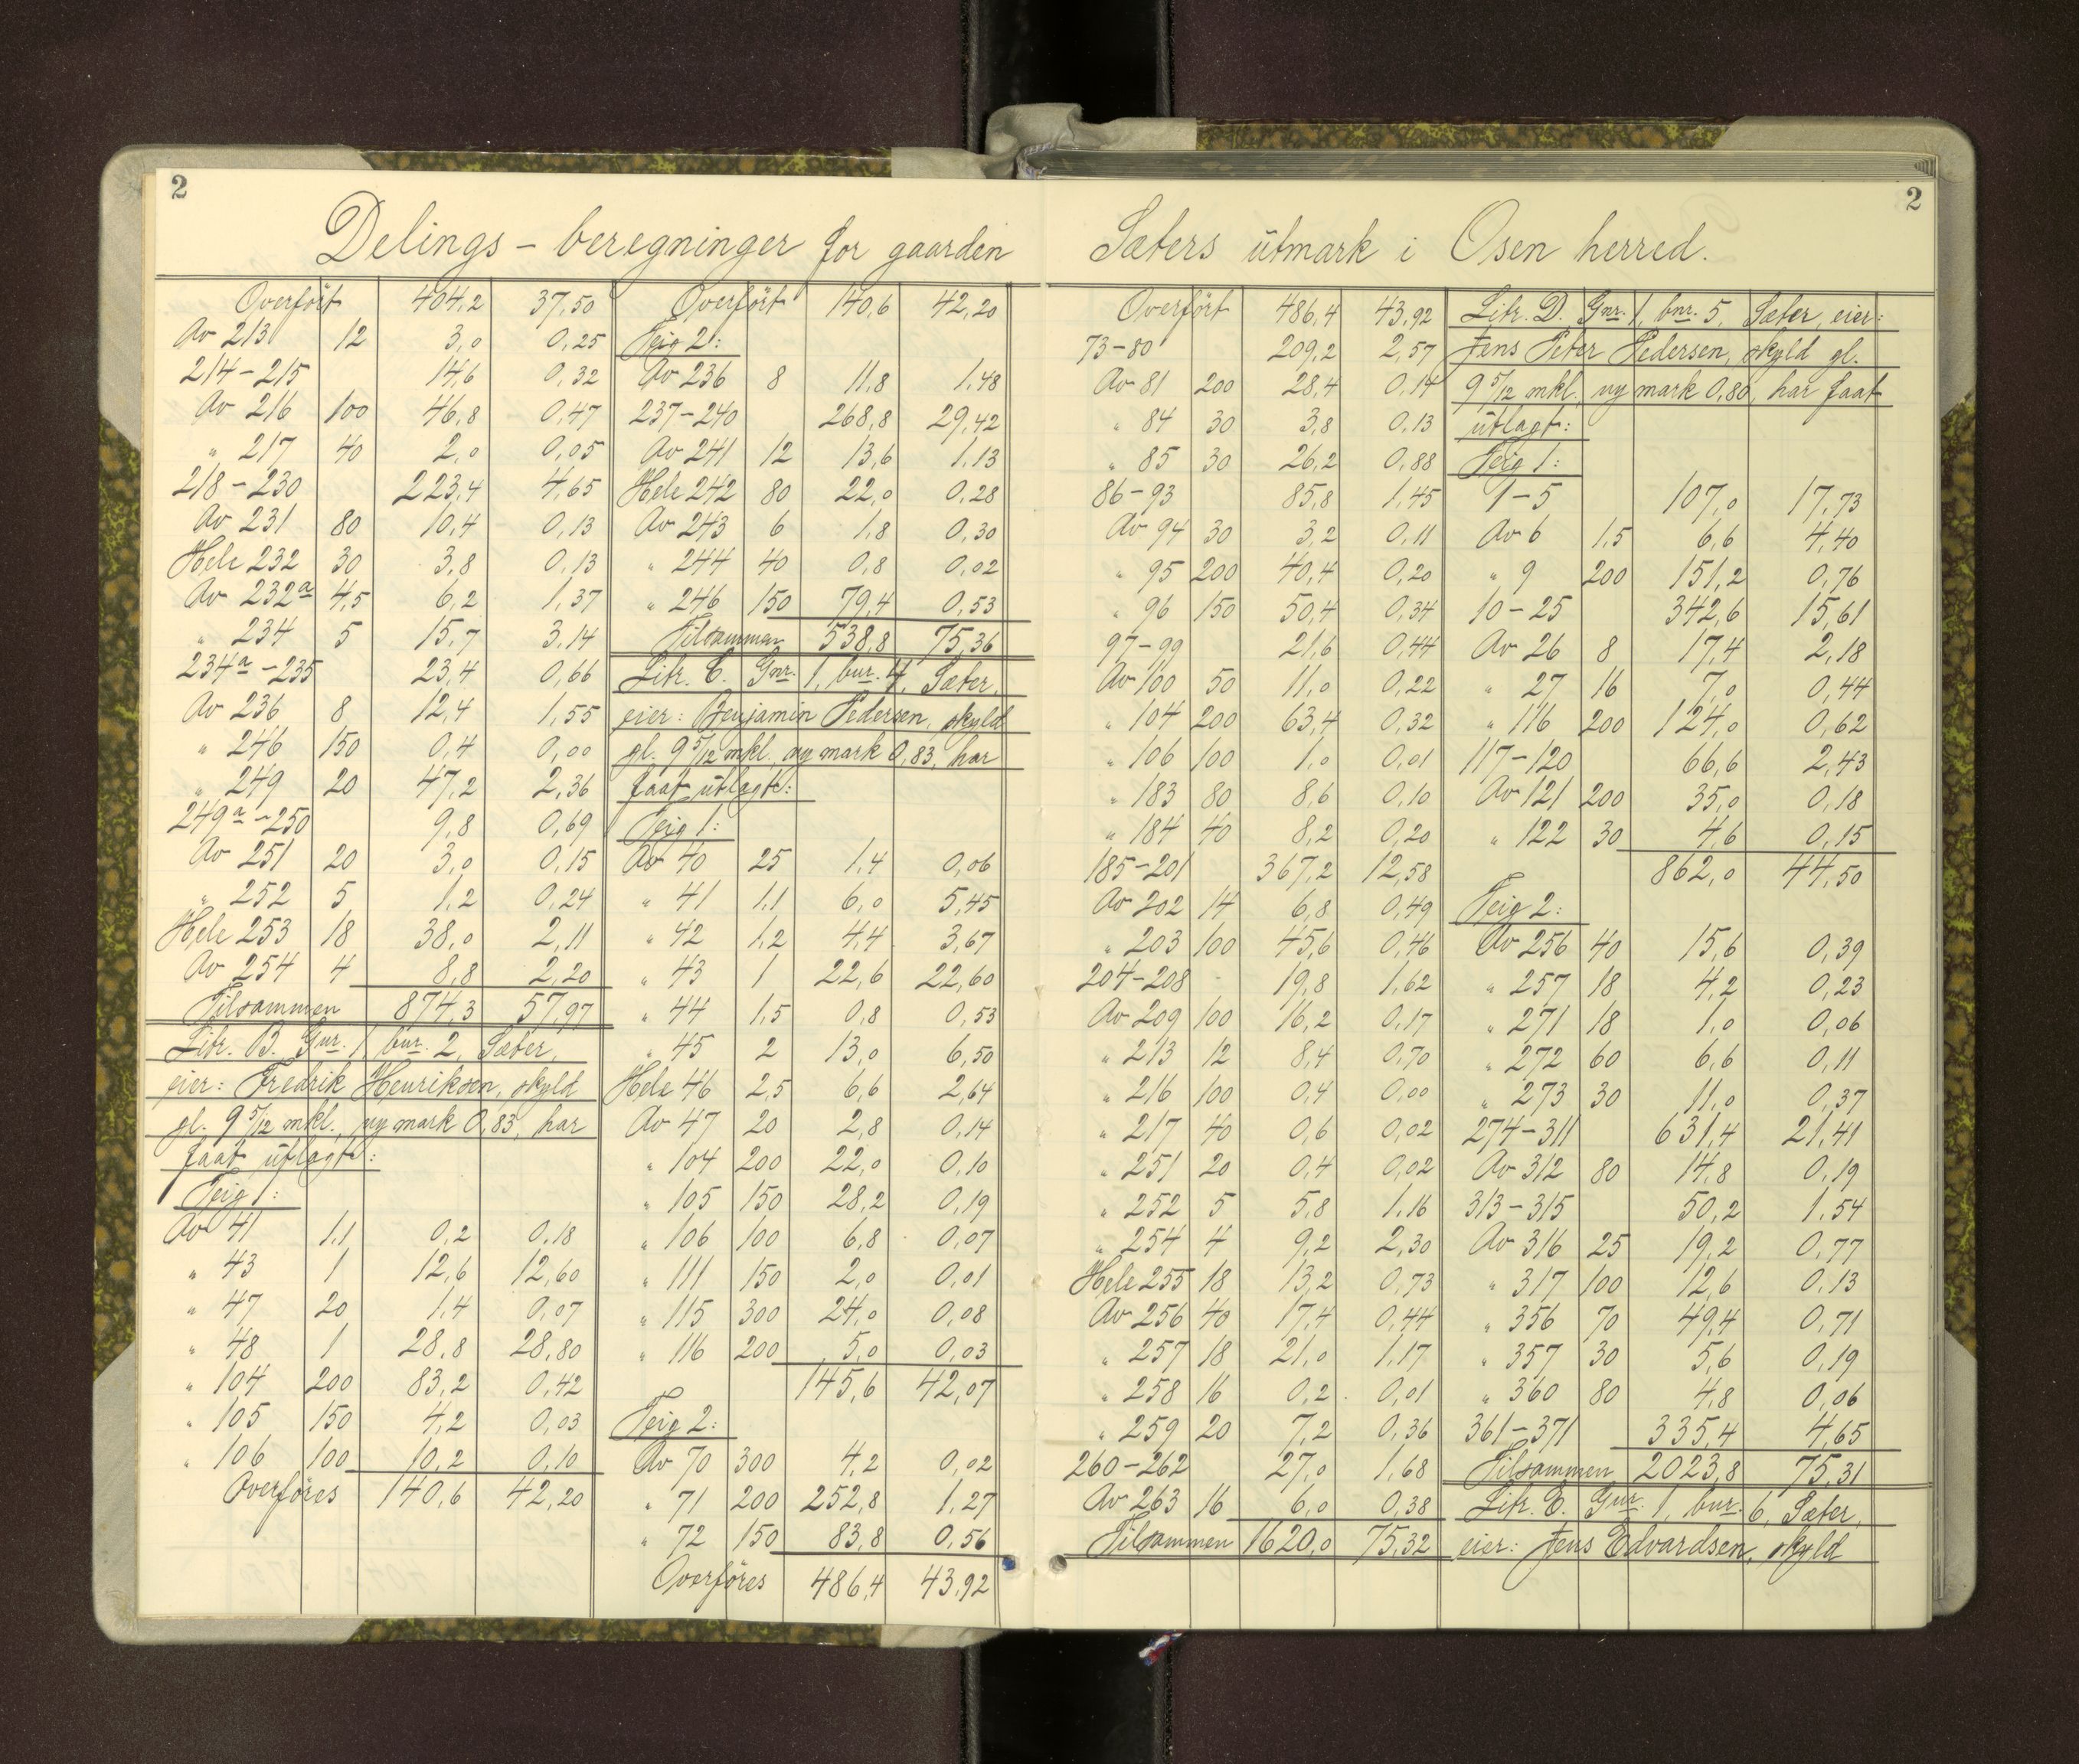 2
2
Delings - beregninger for gaarden Sæters utmark i Osen herred.
Overført 404,2 37,50
Av 213 12 3,0 0,25
214-215 14,6 0,32
Av 216 100 46,8 0,47
" 217 40 2,0 0,05
218-230 223,4 4,65
Av 231 80 10,4 0,13
Hele 232 30 3,8 0,13
Av 232a 4,5 6,2 1,37
" 234 5 15,7 3,14
234a-235 23,4 0,66
Av 236 8 12,4 1,55
" 246 150 0,4 0,00
" 249 20 47,2 2,36
249a-250 9,8 0,69
Av 251 20 3,0 0,15
" 252 5 1,2 0,24
Hele 253 18 38,0 2,11
Av 254 4 8,8 2,20
Tilsammen 874,3 57,97
Litr. B. Gnr. 1, bnr. 2, Sæter,
eier: Fredrik Henriksen, skyld
gl. 9 5/12 mkl., ny mark 0,83, har
faat utlagt:
Teig 1:
Av 41 1,1 0,2 0,18
" 43 1 12,6 12,60
" 47 20 1,4 0,07
" 48 1 28,8 28,80
" 104 200 83,2 0,42
" 105 150 4,2 0,03
" 106 100 10,2 0,10
Overføres 140,6 42,20
Overført 140,6 42,20
Teig 2:
Av 236 8 11,8 1,48
237-240 268,8 29,42
Av 241 12 13,6 1,13
Hele 242 80 22,0 0,28
Av 243 6 1,8 0,30
" 244 40 0,8 0,02
" 246 150 79,4 0,53
Tilsammen 538,8 75,36
Litr. C. Gnr. 1, bnr. 4, Sæter,
eier: Benjamin Pedersen, skyld
gl. 9 5/12 mkl., ny mark 0,83, har
faat utlagt:
Teig 1:
Av 40 25 1,4 0,06
" 41 1,1 6,0 5,45
" 42 1,2 4,4 3,67
" 43 1 22,6 22,60
" 44 1,5 0,8 0,53
" 45 2 13,0 6,50
Hele 46 2,5 6,6 2,64
Av 47 20 2,8 0,14
" 104 200 22,0 0,10
" 105 150 28,2 0,19
" 106 100 6,8 0,07
" 111 150 2,0 0,01
" 115 300 24,0 0,08
" 116 200 5,0 0,03
145,6 42,07
Teig 2:
Av 70 300 4,2 0,02
" 71 200 252,8 1,27
" 72 150 83,8 0,56
Overføres 486,4 43,92
Overført 486,4 43,92
73-80 209,2 2,57
Av 81 200 28,4 0,14
" 84 30 3,8 0,13
" 85 30 26,2 0,88
86-93 85,8 1,45
Av 94 30 3,2 0,11
" 95 200 40,4 0,20
" 96 150 50,4 0,34
97-99 21,6 0,44
Av 100 50 11,0 0,22
" 104 200 63,4 0,32
" 106 100 1,0 0,01
" 183 80 8,6 0,10
" 184 40 8,2 0,20
185-201 367,2 12,58
Av 202 14 6,8 0,49
" 203 100 45,6 0,46
204-208 19,8 1,62
Av 209 100 16,2 0,17
" 213 12 8,4 0,70
" 216 100 0,4 0,00
" 217 40 0,6 0,02
" 251 20 0,4 0,02
" 252 5 5,8 1,16
" 254 4 9,2 2,30
Hele 255 18 13,2 0,73
Av 256 40 17,4 0,44
" 257 18 21,0 1,17
" 258 16 0,2 0,01
" 259 20 7,2 0,36
260-262 27,0 1,68
Av 263 16 6,0 0,38
Tilsammen 1620,0 75,32
Litr. D. Gnr. 1, bnr. 5, Sæter, eier:
Jens Peter Pedersen, skyld gl.
9 5/12 mkl., ny mark 0,80, har faat
utlagt:
Teig 1:
1-5 107,0 17,73
Av 6 1,5 6,6 4,40
" 9 200 151,2 0,76
10-25 342,6 15,61
Av 26 8 17,4 2,18
" 27 16 7,0 0,44
" 116 200 124,0 0,62
117-120 66,6 2,43
Av 121 200 35,0 0,18
" 122 30 4,6 0,15
862,0 44,50
Teig 2:
Av 256 40 15,6 0,39
" 257 18 4,2 0,23
" 271 18 1,0 0,06
" 272 60 6,6 0,11
" 273 30 11,0 0,37
274-311 631,4 21,41
Av 312 80 14,8 0,19
313-315 50,2 1,54
Av 316 25 19,2 0,77
" 317 100 12,6 0,13
" 356 70 49,4 0,71
" 357 30 5,6 0,19
" 360 80 4,8 0,06
361-371 335,4 4,65
Tilsammen 2023,8 75,31
Litr. E. Gnr. 1, bnr. 6, Sæter,
eier: Jens Edvardsen, skyld